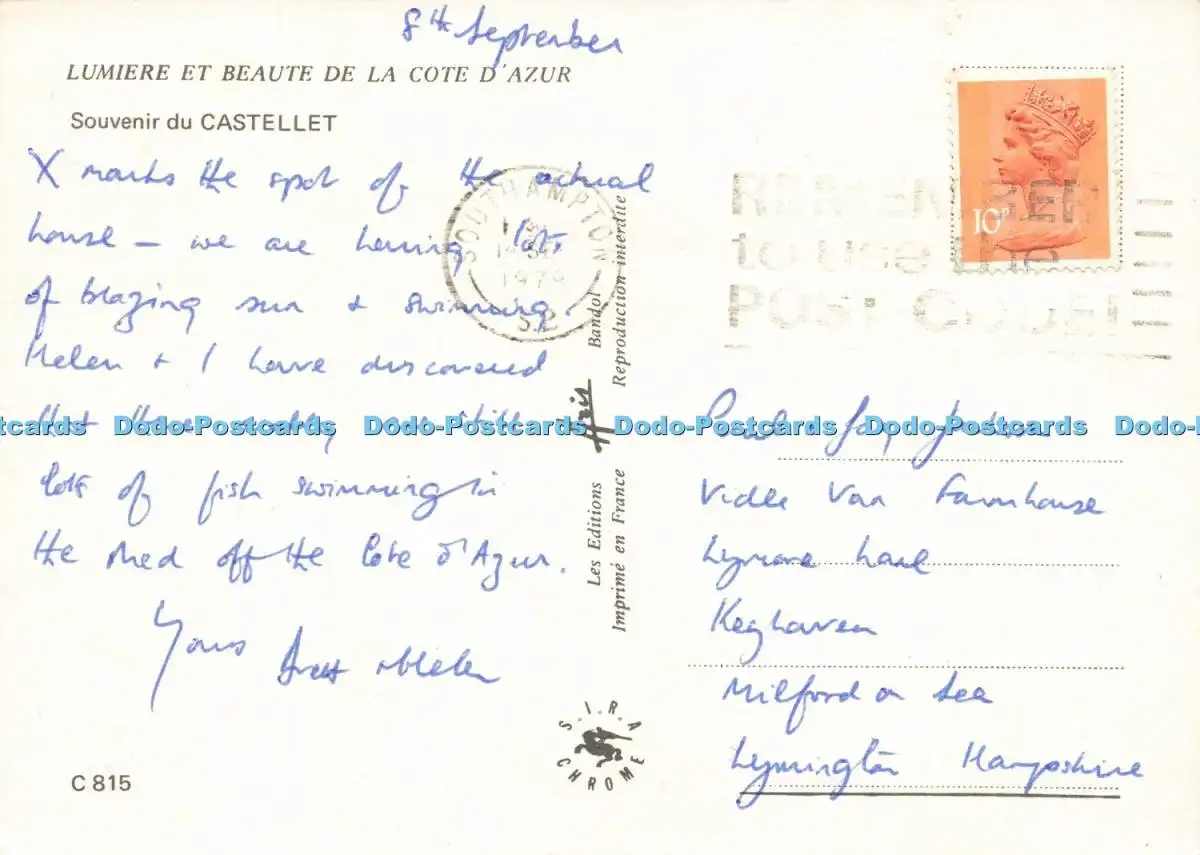 8th September
LUMIERE ET BEAUTE DE LA COTE D'AZUR
Souvenir du CASTELLET
X marks the spot of the actual
house — we are having lots
of blazing sun & swimming.
Helen & I have discovered
that there really are still
lots of fish swimming in
the Med off the Cote d'Azur.
Yours
& Helen
C 815
SOUTHAMPTON
1979
S.2
Les Editions Aris Bandol
Imprimé en France Reproduction interdite
S.I.R.A
CHROME
10P
REMEMBER
to use the
POST CODE!
Farmhouse
Lane
Keyhaven
Milford on Sea
Lymington Hampshire
Dodo-Postcards Dodo-Postcards Dodo-Postcards Dodo-Postcards Dodo-Postcards